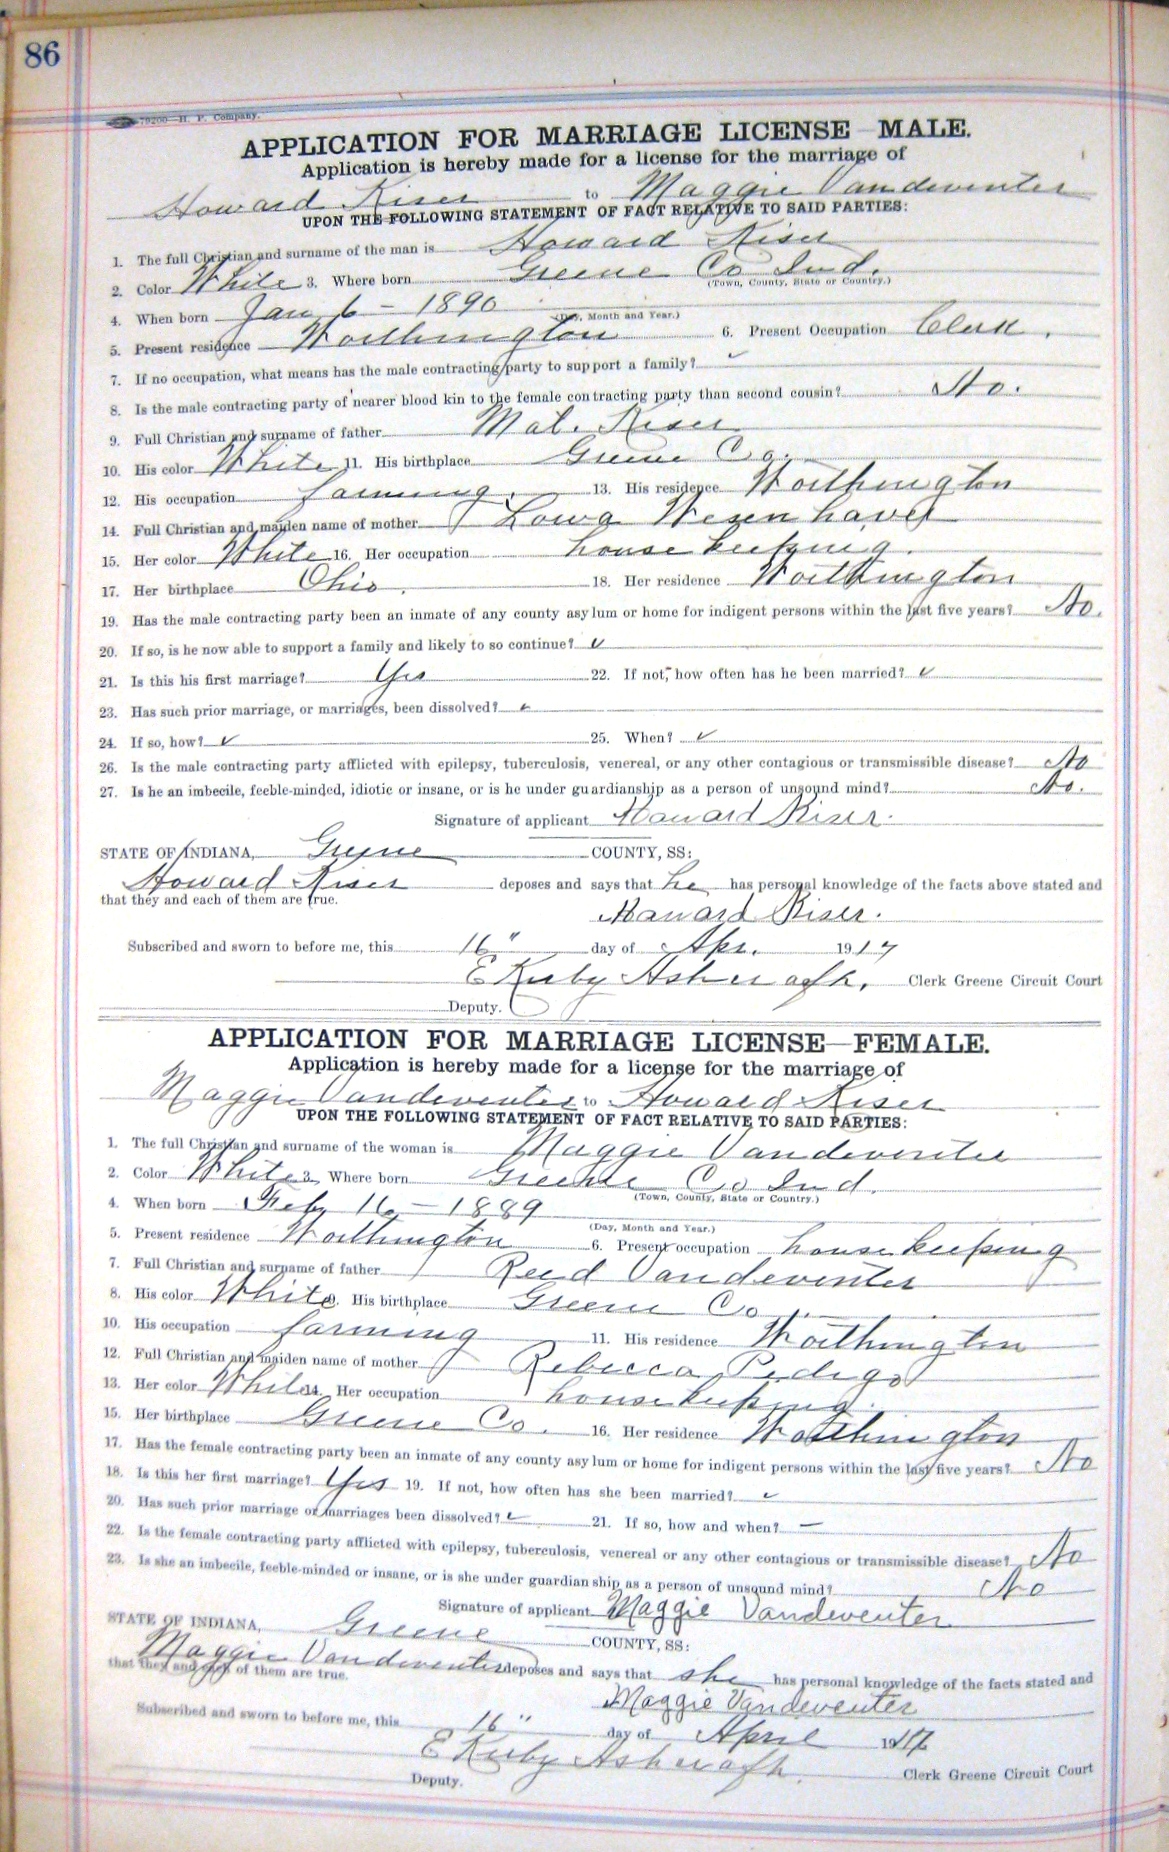 86
79200—H. P. Company.
APPLICATION FOR MARRIAGE LICENSE—MALE.
Application is hereby made for a license for the marriage of
Howard Kiser to Maggie Vandeventer
UPON THE FOLLOWING STATEMENT OF FACT RELATIVE TO SAID PARTIES:
1. The full Christian and surname of the man is Howard Kiser
2. Color White 3. Where born Greene Co Ind.
(Town, County, State or Country.)
4. When born Jan 6 - 1890
(Day, Month and Year.)
5. Present residence Worthington 6. Present Occupation Clerk.
7. If no occupation, what means has the male contracting party to support a family? ✓
8. Is the male contracting party of nearer blood kin to the female contracting party than second cousin? No.
9. Full Christian and surname of father Mat. Kiser
10. His color White 11. His birthplace Greene Co.
12. His occupation farming. 13. His residence Worthington
14. Full Christian and maiden name of mother Wesenhaver
15. Her color White 16. Her occupation housekeeping.
17. Her birthplace Ohio. 18. Her residence Worthington
19. Has the male contracting party been an inmate of any county asylum or home for indigent persons within the last five years? No.
20. If so, is he now able to support a family and likely to so continue? ✓
21. Is this his first marriage? Yes 22. If not, how often has he been married? ✓
23. Has such prior marriage, or marriages, been dissolved? ✓
24. If so, how? ✓ 25. When? ✓
26. Is the male contracting party afflicted with epilepsy, tuberculosis, venereal, or any other contagious or transmissible disease? No
27. Is he an imbecile, feeble-minded, idiotic or insane, or is he under guardianship as a person of unsound mind? No.
Signature of applicant Howard Kiser.
STATE OF INDIANA, Greene COUNTY, SS:
Howard Kiser deposes and says that he has personal knowledge of the facts above stated and
that they and each of them are true.
Howard Kiser.
Subscribed and sworn to before me, this 16" day of Apr. 1917
E Kirby Ashcraft. Clerk Greene Circuit Court
Deputy.
APPLICATION FOR MARRIAGE LICENSE—FEMALE.
Application is hereby made for a license for the marriage of
Maggie Vandeventer to Howard Kiser
UPON THE FOLLOWING STATEMENT OF FACT RELATIVE TO SAID PARTIES:
1. The full Christian and surname of the woman is Maggie Vandeventer
2. Color White 3. Where born Greene Co Ind.
(Town, County, State or Country.)
4. When born Feb 16 - 1889
(Day, Month and Year.)
5. Present residence Worthington 6. Present occupation housekeeping
7. Full Christian and surname of father Reed Vandeventer
8. His color White 9. His birthplace Greene Co.
10. His occupation farming 11. His residence Worthington
12. Full Christian and maiden name of mother Rebecca Pedigo
13. Her color White 14. Her occupation housekeeping.
15. Her birthplace Greene Co. 16. Her residence Worthington
17. Has the female contracting party been an inmate of any county asylum or home for indigent persons within the last five years? No
18. Is this her first marriage? Yes 19. If not, how often has she been married? ✓
20. Has such prior marriage or marriages been dissolved? ✓ 21. If so, how and when? —
22. Is the female contracting party afflicted with epilepsy, tuberculosis, venereal or any other contagious or transmissible disease? No
23. Is she an imbecile, feeble-minded or insane, or is she under guardianship as a person of unsound mind? No
Signature of applicant Maggie Vandeventer
STATE OF INDIANA, Greene COUNTY, SS:
Maggie Vandeventer deposes and says that she has personal knowledge of the facts stated and
that they and each of them are true.
Maggie Vandeventer
Subscribed and sworn to before me, this 16" day of April 1917
E Kirby Ashcraft. Clerk Greene Circuit Court
Deputy.